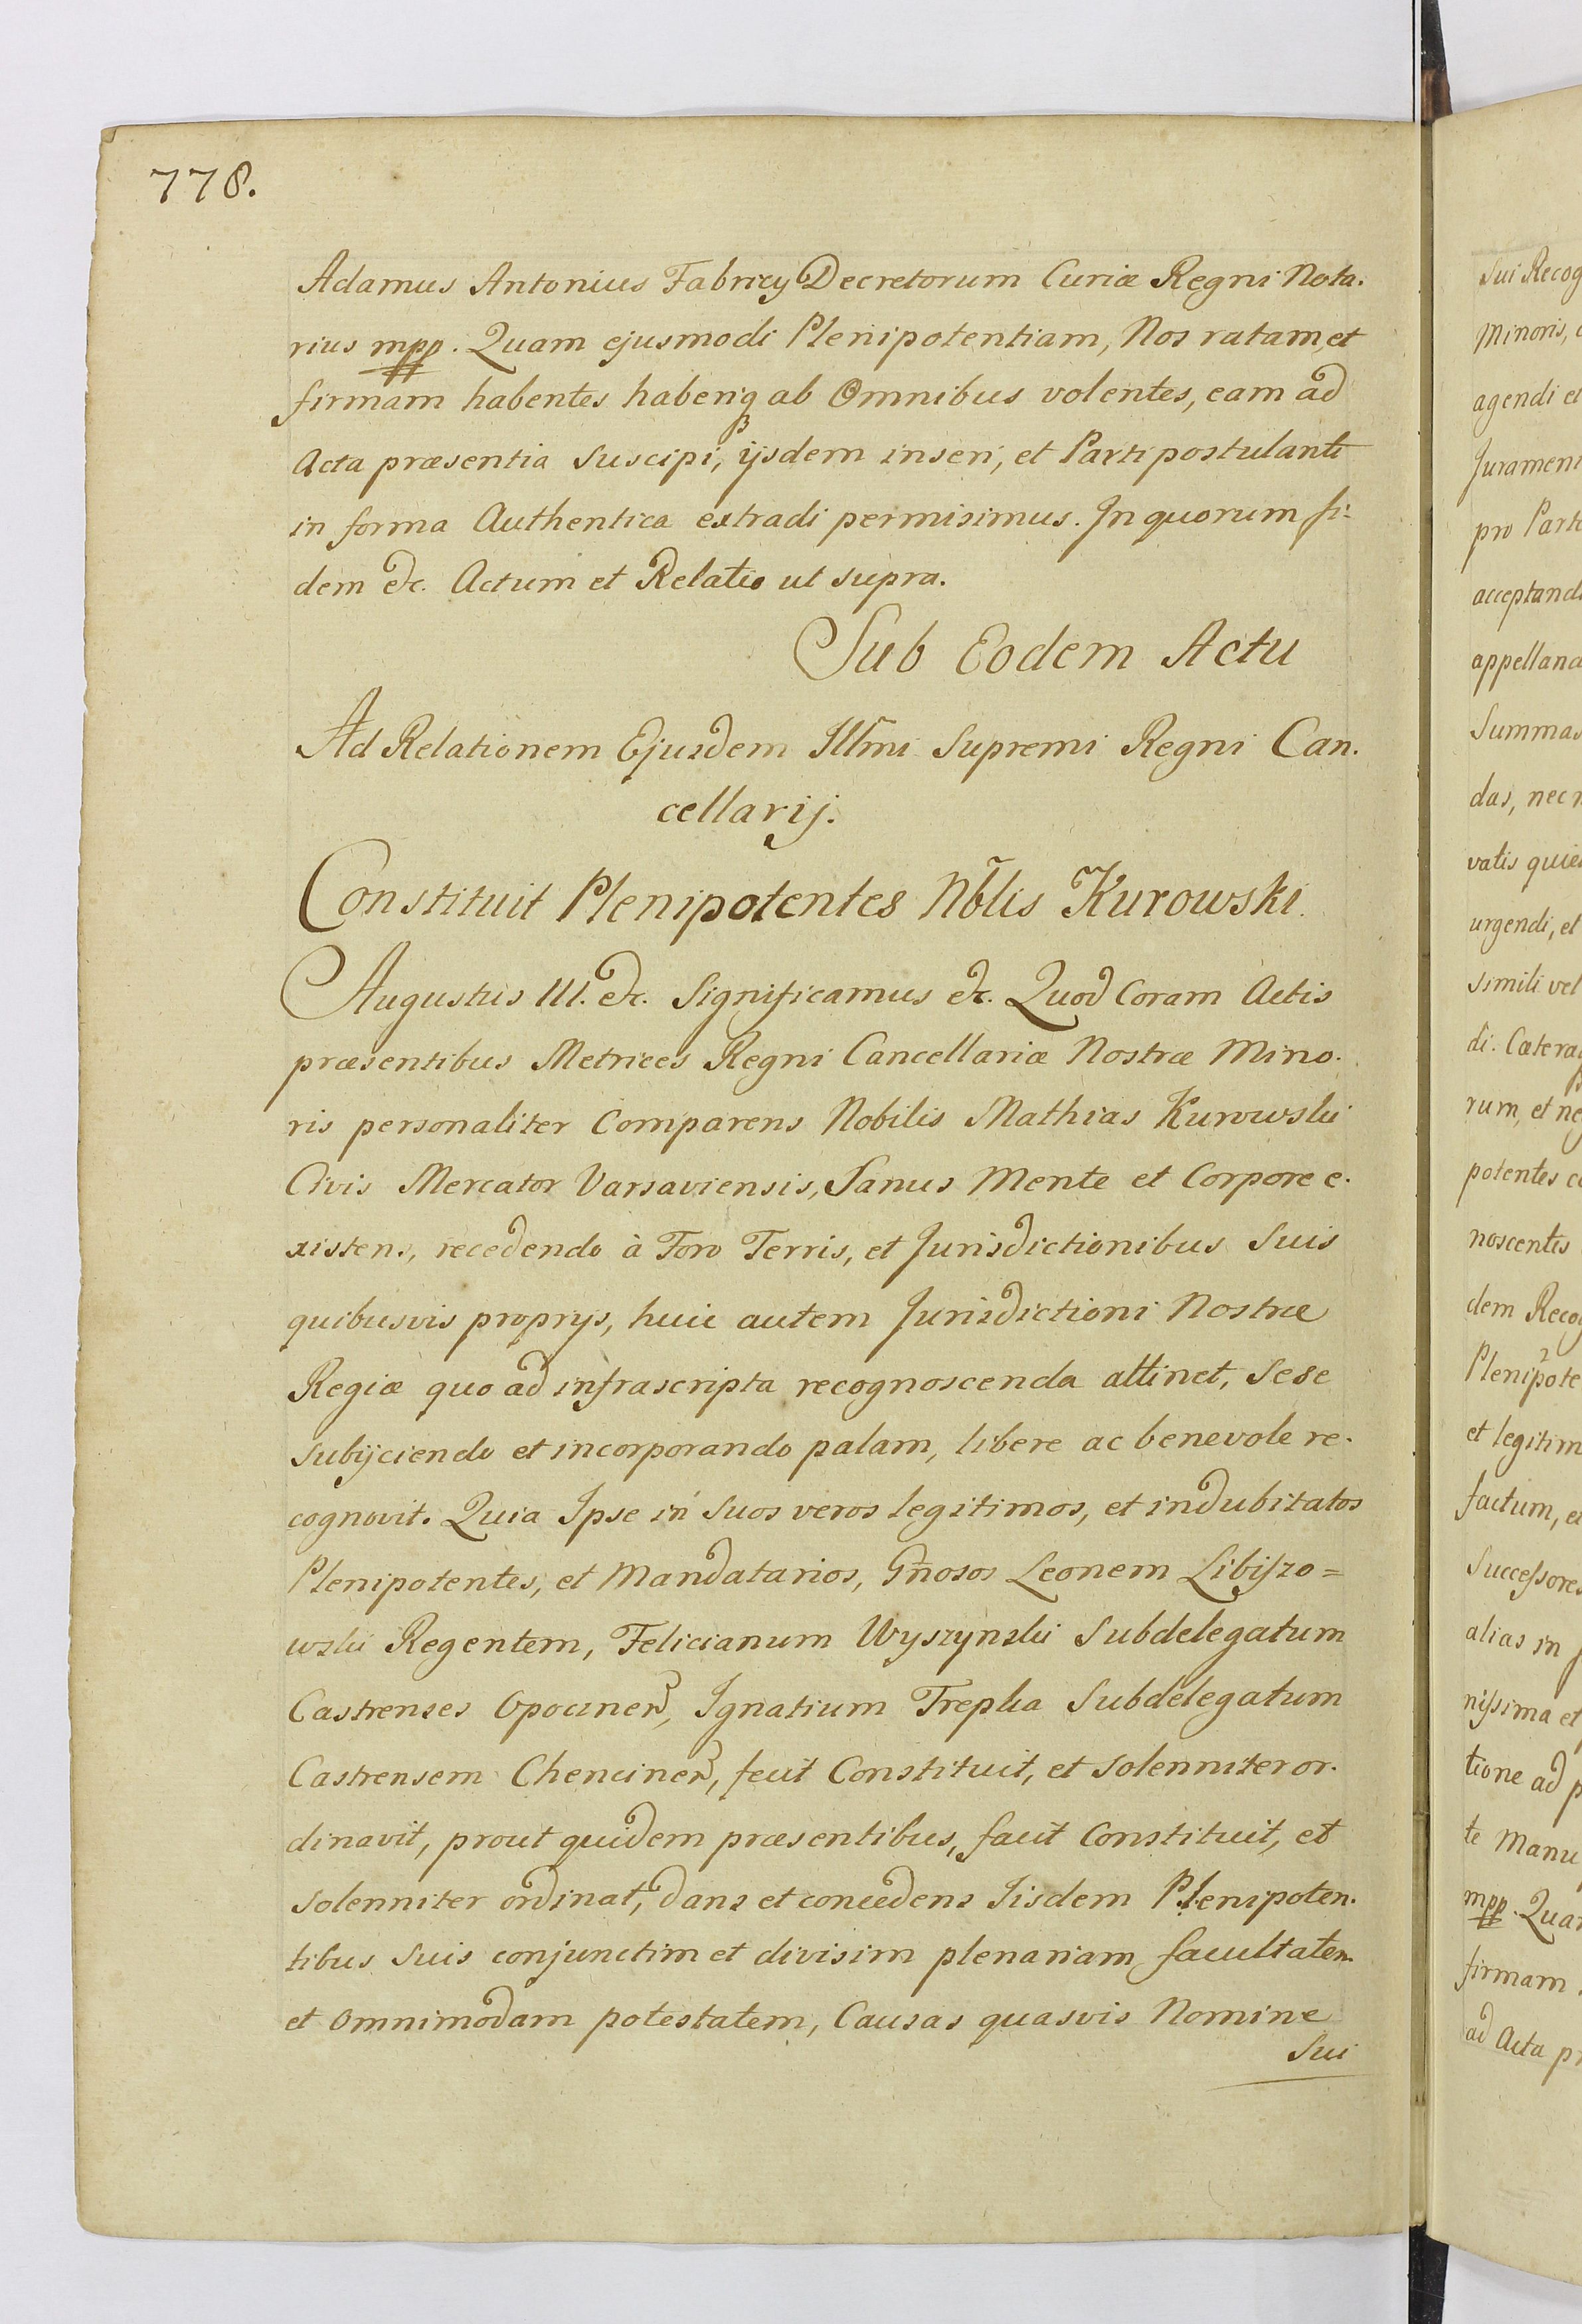 778.
Adamus Antonius Fabricy Decretorum Curiæ Regni Nota.
rius mpp. Quam ejusmodi Plenipotentiam, Nos ratam, et
firmam habentes haberiq; ab Omnibus volentes, eam ad
Acta præsentia suscipi, ijsdem inseri, et Parti postulanti
in forma Authentica extradi permisimus. In quorum fi-
dem &c. Actum et Relatio ut supra.
Sub Eodem Actu
Ad Relationem Ejusdem Illm̃i Supremi Regni Can.
cellarij.
Constituit Plenipotentes Nb̃lis Kurowski.
Augustus III. &c. Significamus &c. Quod Coram Actis
præsentibus Metrices Regni Cancellariæ Nostræ Mino.
ris personaliter Comparens Nobilis Mathias Kurowski
Civis Mercator Varsaviensis, Sanus Mente et Corpore e.
xistens, recedendo à Foro Terris, et Jurisdictionibus Suis
quibusvis proprys, huic autem Jurisdictioni Nostræ
Regiæ quo ad infrascripta recognoscenda attinet, Sese
subijciendo et incorporando palam, libere ac benevole re.
cognovit. Quia Ipse in Suos veros legitimos, et indubitatos
Plenipotentes, et Mandatarios, Gñosos Leonem Libiszo=
wski Regentem, Felicianum Wyszynski Subdelegatum
Castrenses Opocinen, Ignatium Trepka Subdelegatum
Castrensem Chencinen, fecit Constituit, et solenniter or.
dinavit, prout quidem præsentibus, facit Constituit, et
solenniter ordinat, dans et concedens Iisdem Plenipoten.
tibus Suis conjunctim et divisim plenariam facultatem
et omnimodam potestatem, Causas quasvis Nomine
Sui
Sui Recog
Minoris,
agendi et
Jurament
pro Parte
acceptand
appelland
Summas
das, nec n
vatis quie
urgendi, et
simili vel
di. Cætera
rum, et ne
potentes c
noscentis
dem Recog
Plenipote
et legitim
factum, e
Successores
alias in
nissima et
tione ad p
te Manu
mpp. Qua
firmam
ad Acta pr